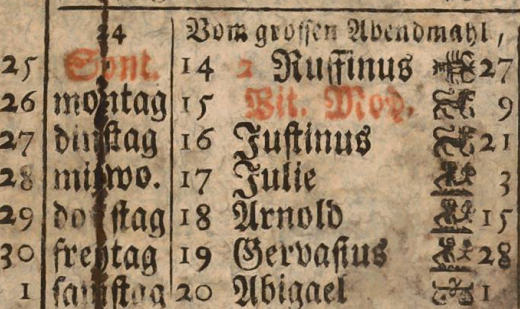 24 Vom grossen Abendmahl,
25 Sont. 14 2 Ruffinus 27
26 montag 15 Vit. Mod. 9
27 dinstag 16 Justinus 21
28 mitwo. 17 Julie 3
29 donstag 18 Arnold 15
30 freytag 19 Gervasius 28
1 samstag 20 Abigael 1